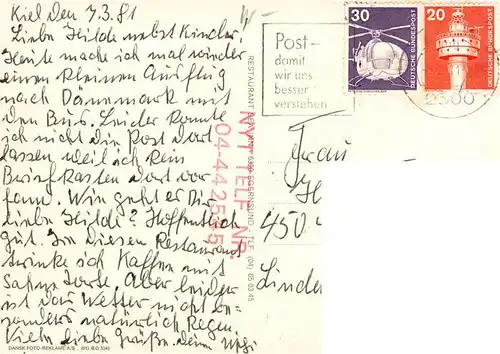 Kiel den 7.3.81
Liebe Hilde nebst Kinder.
Heute mache ich mal wieder
einen kleinen Ausflug
nach Dänemark mit
den Bus. Leider konnte
ich nicht die Post dort
lassen weil ich kein
Briefkasten dort vor
fann. Wie geht es Dir
liebe Hilde? Hoffentlich
gut. In diesen Restaurant
trinke ich Kaffee mit
Sahne Torte. Aber leider
ist das Wetter nicht be-
sonders natürlich Regen.
Viele Liebe Grüße. Deine
DANSK FOTO-REKLAME A/S
RESTAURANT
EGERNSUND
TLF. (04)
NYT TELF. NR.
04-442545
Post-
damit
wir uns
besser
verstehen
30
DEUTSCHE BUNDESPOST
20
DEUTSCHE BUNDESPOST
2300
Frau
H
450
Linde